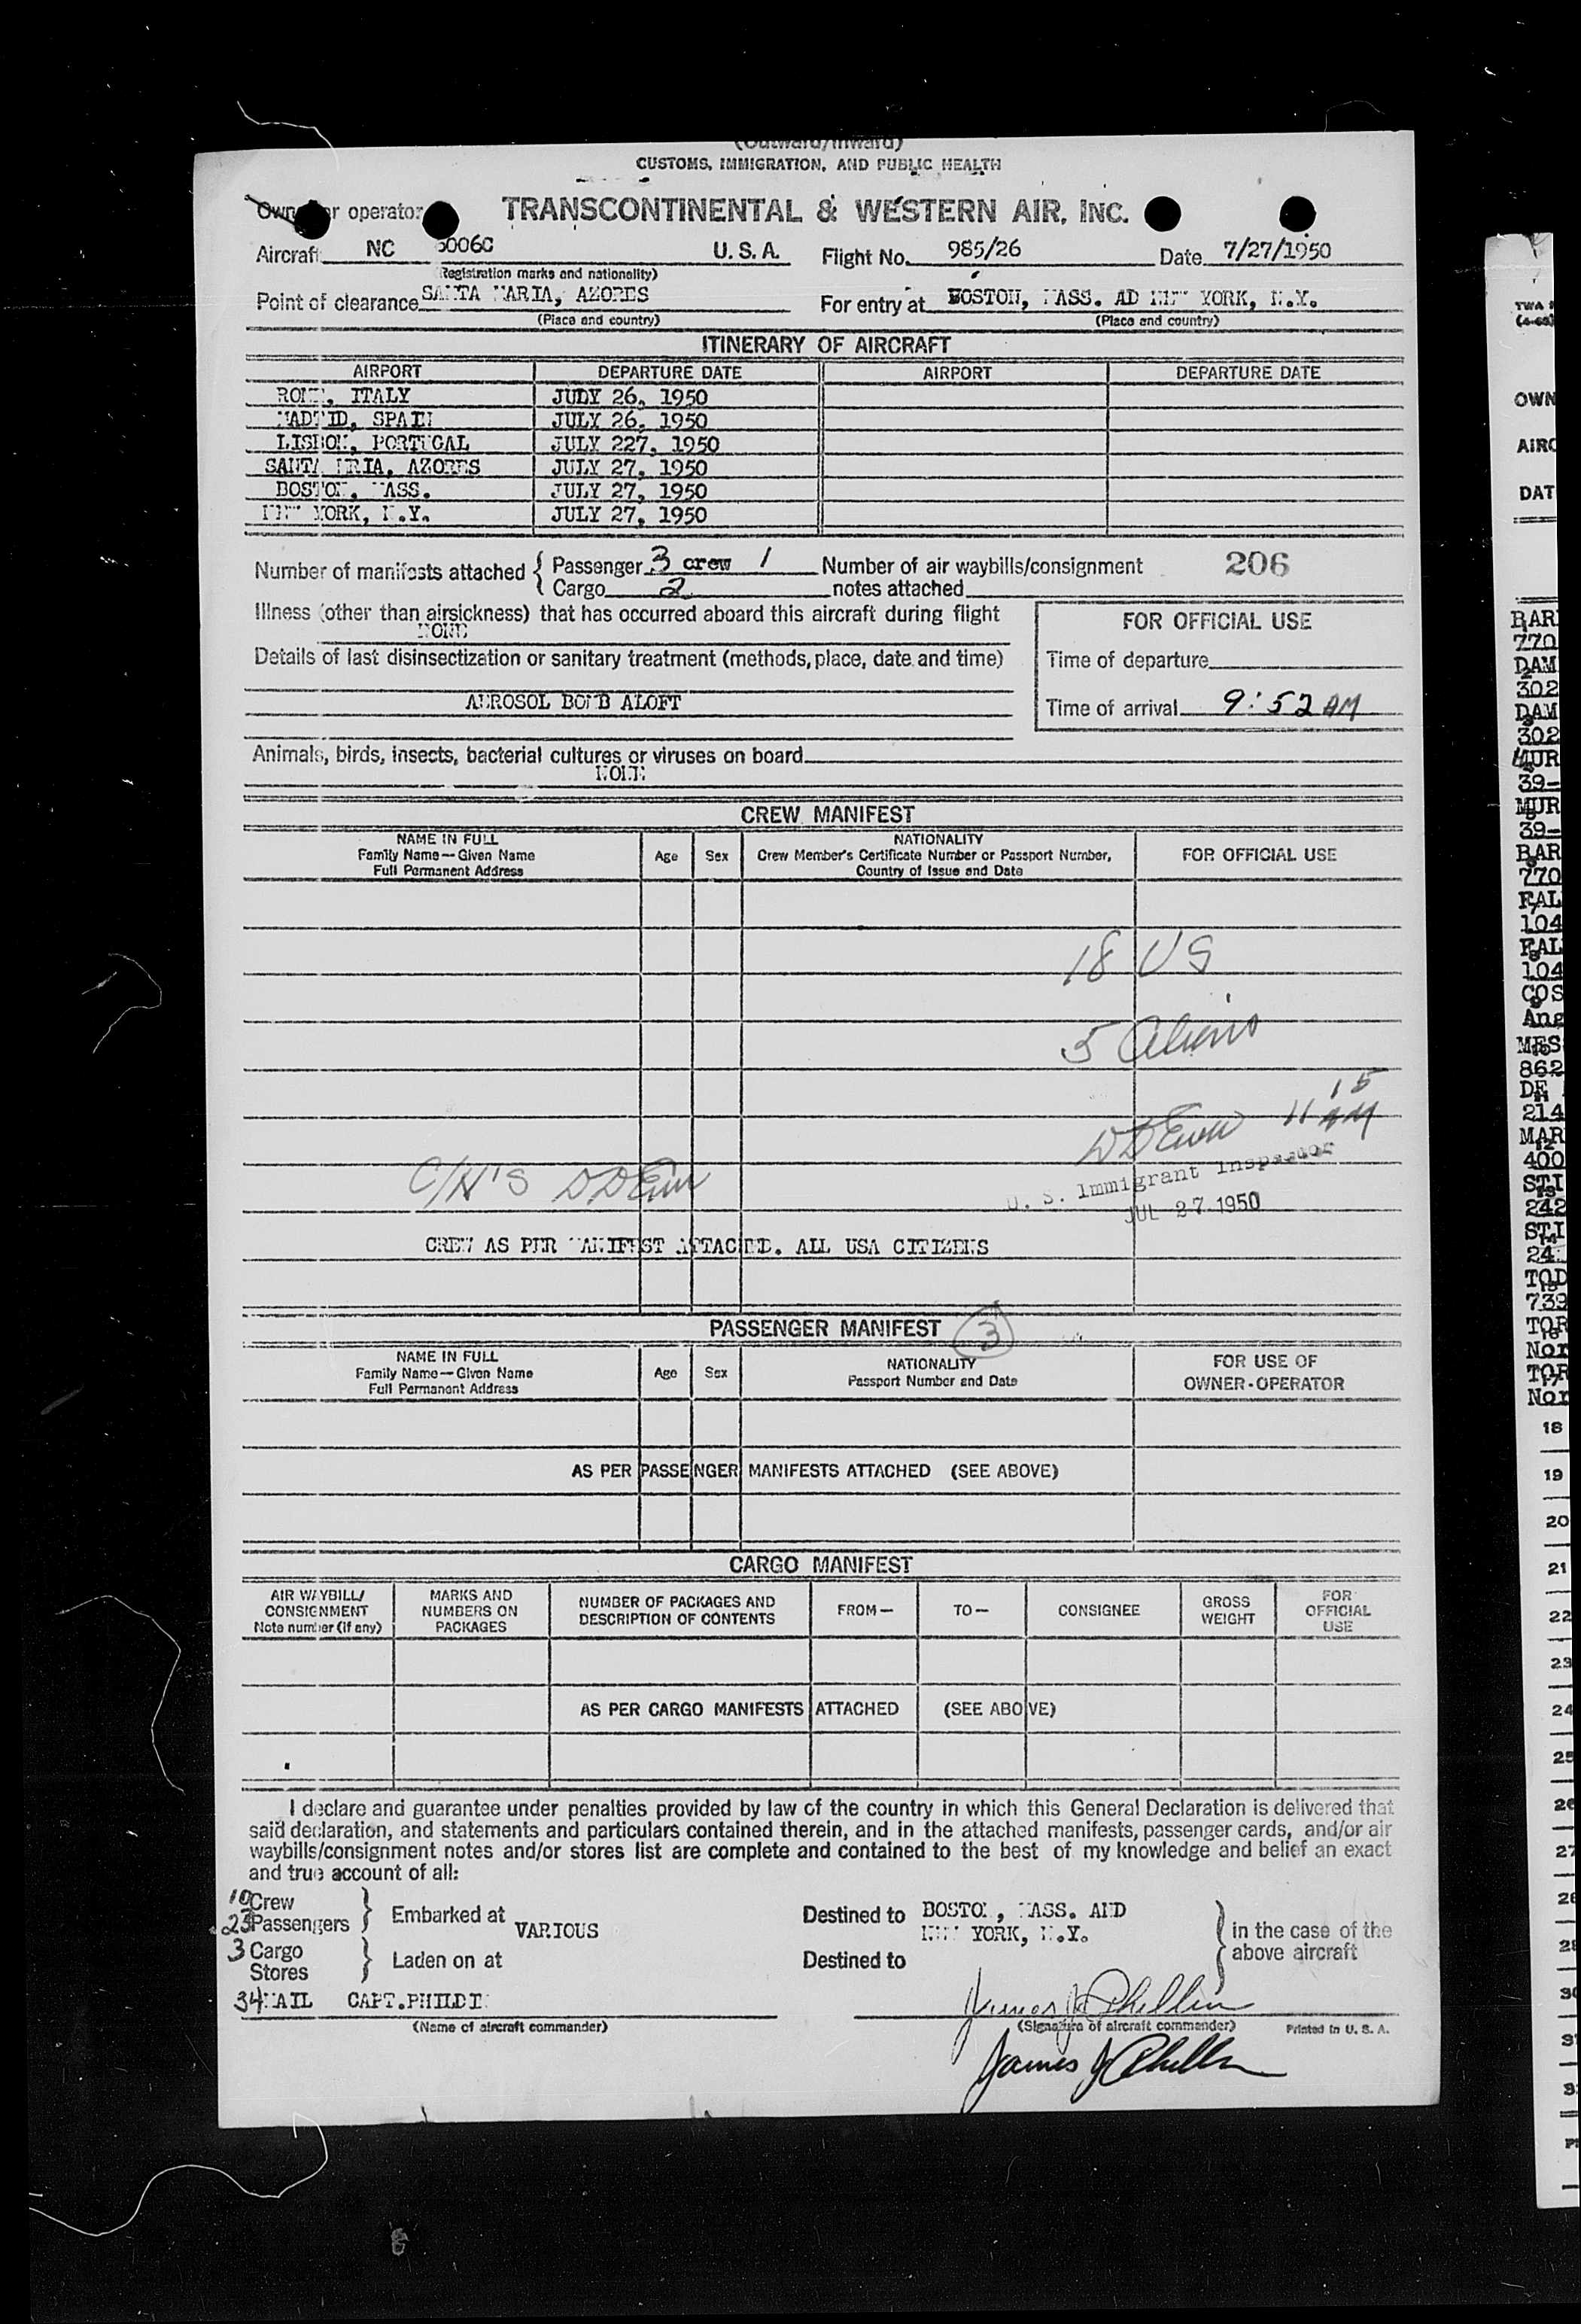 (Outward/Inward)
CUSTOMS, IMMIGRATION, AND PUBLIC HEALTH
Owner or operator TRANSCONTINENTAL & WESTERN AIR, INC.
Aircraft NC U.S.A. Flight No. 985/26 Date 7/27/1950
(Registration marks and nationality)
Point of clearance SANTA MARIA, AZORES For entry at BOSTON, MASS. AD NEW YORK, N.Y.
(Place and country) (Place and country)
ITINERARY OF AIRCRAFT
AIRPORT DEPARTURE DATE AIRPORT DEPARTURE DATE
ROME, ITALY JUDY 26, 1950
MADRID, SPAIN JULY 26, 1950
LISBON, PORTUGAL JULY 227, 1950
SANTA MRIA, AZORES JULY 27, 1950
BOSTON, MASS. JULY 27, 1950
NEW YORK, N.Y. JULY 27, 1950
Number of manifests attached { Passenger 3 crew 1 Number of air waybills/consignment 206
Cargo 2 notes attached
Illness (other than airsickness) that has occurred aboard this aircraft during flight
NONE
FOR OFFICIAL USE
Details of last disinsectization or sanitary treatment (methods, place, date and time)
Time of departure
AEROSOL BOMB ALOFT
Time of arrival 9:52 AM
Animals, birds, insects, bacterial cultures or viruses on board
NONE
CREW MANIFEST
NAME IN FULL
Family Name—Given Name
Full Permanent Address
Age Sex
NATIONALITY
Crew Member's Certificate Number or Passport Number,
Country of Issue and Date
FOR OFFICIAL USE
18 US
5 Aliens
11 15 AM
U. S. Immigrant Inspector
JUL 27 1950
C/H'S
CREW AS PER MANIFEST ATTACHED. ALL USA CITIZENS
PASSENGER MANIFEST 3
NAME IN FULL
Family Name—Given Name
Full Permanent Address
Age Sex
NATIONALITY
Passport Number and Date
FOR USE OF
OWNER-OPERATOR
AS PER PASSENGER MANIFESTS ATTACHED (SEE ABOVE)
CARGO MANIFEST
AIR WAYBILL/
CONSIGNMENT
Note number (if any)
MARKS AND
NUMBERS ON
PACKAGES
NUMBER OF PACKAGES AND
DESCRIPTION OF CONTENTS
FROM— TO— CONSIGNEE
GROSS
WEIGHT
FOR
OFFICIAL
USE
AS PER CARGO MANIFESTS ATTACHED (SEE ABOVE)
I declare and guarantee under penalties provided by law of the country in which this General Declaration is delivered that
said declaration, and statements and particulars contained therein, and in the attached manifests, passenger cards, and/or air
waybills/consignment notes and/or stores list are complete and contained to the best of my knowledge and belief an exact
and true account of all:
10 Crew
23 Passengers
Embarked at VARIOUS
Destined to BOSTON, MASS. AND
NEW YORK, N.Y.
in the case of the
above aircraft
3 Cargo
Stores
Laden on at
Destined to
34 MAIL CAPT.
(Name of aircraft commander) (Signature of aircraft commander) Printed in U. S. A.
James J
TWA
OWN
AIRC
DAT
BAR
770
DAM
302
DAM
302
MUR
39-
MUR
39-
BAR
770
FAL
104
FAL
104
COS
Ang
MES
862
DE
214
MAR
400
STI
242
STI
24
TOD
739
TOR
Nor
TOR
Nor
18
19
20
21
22
23
24
25
26
27